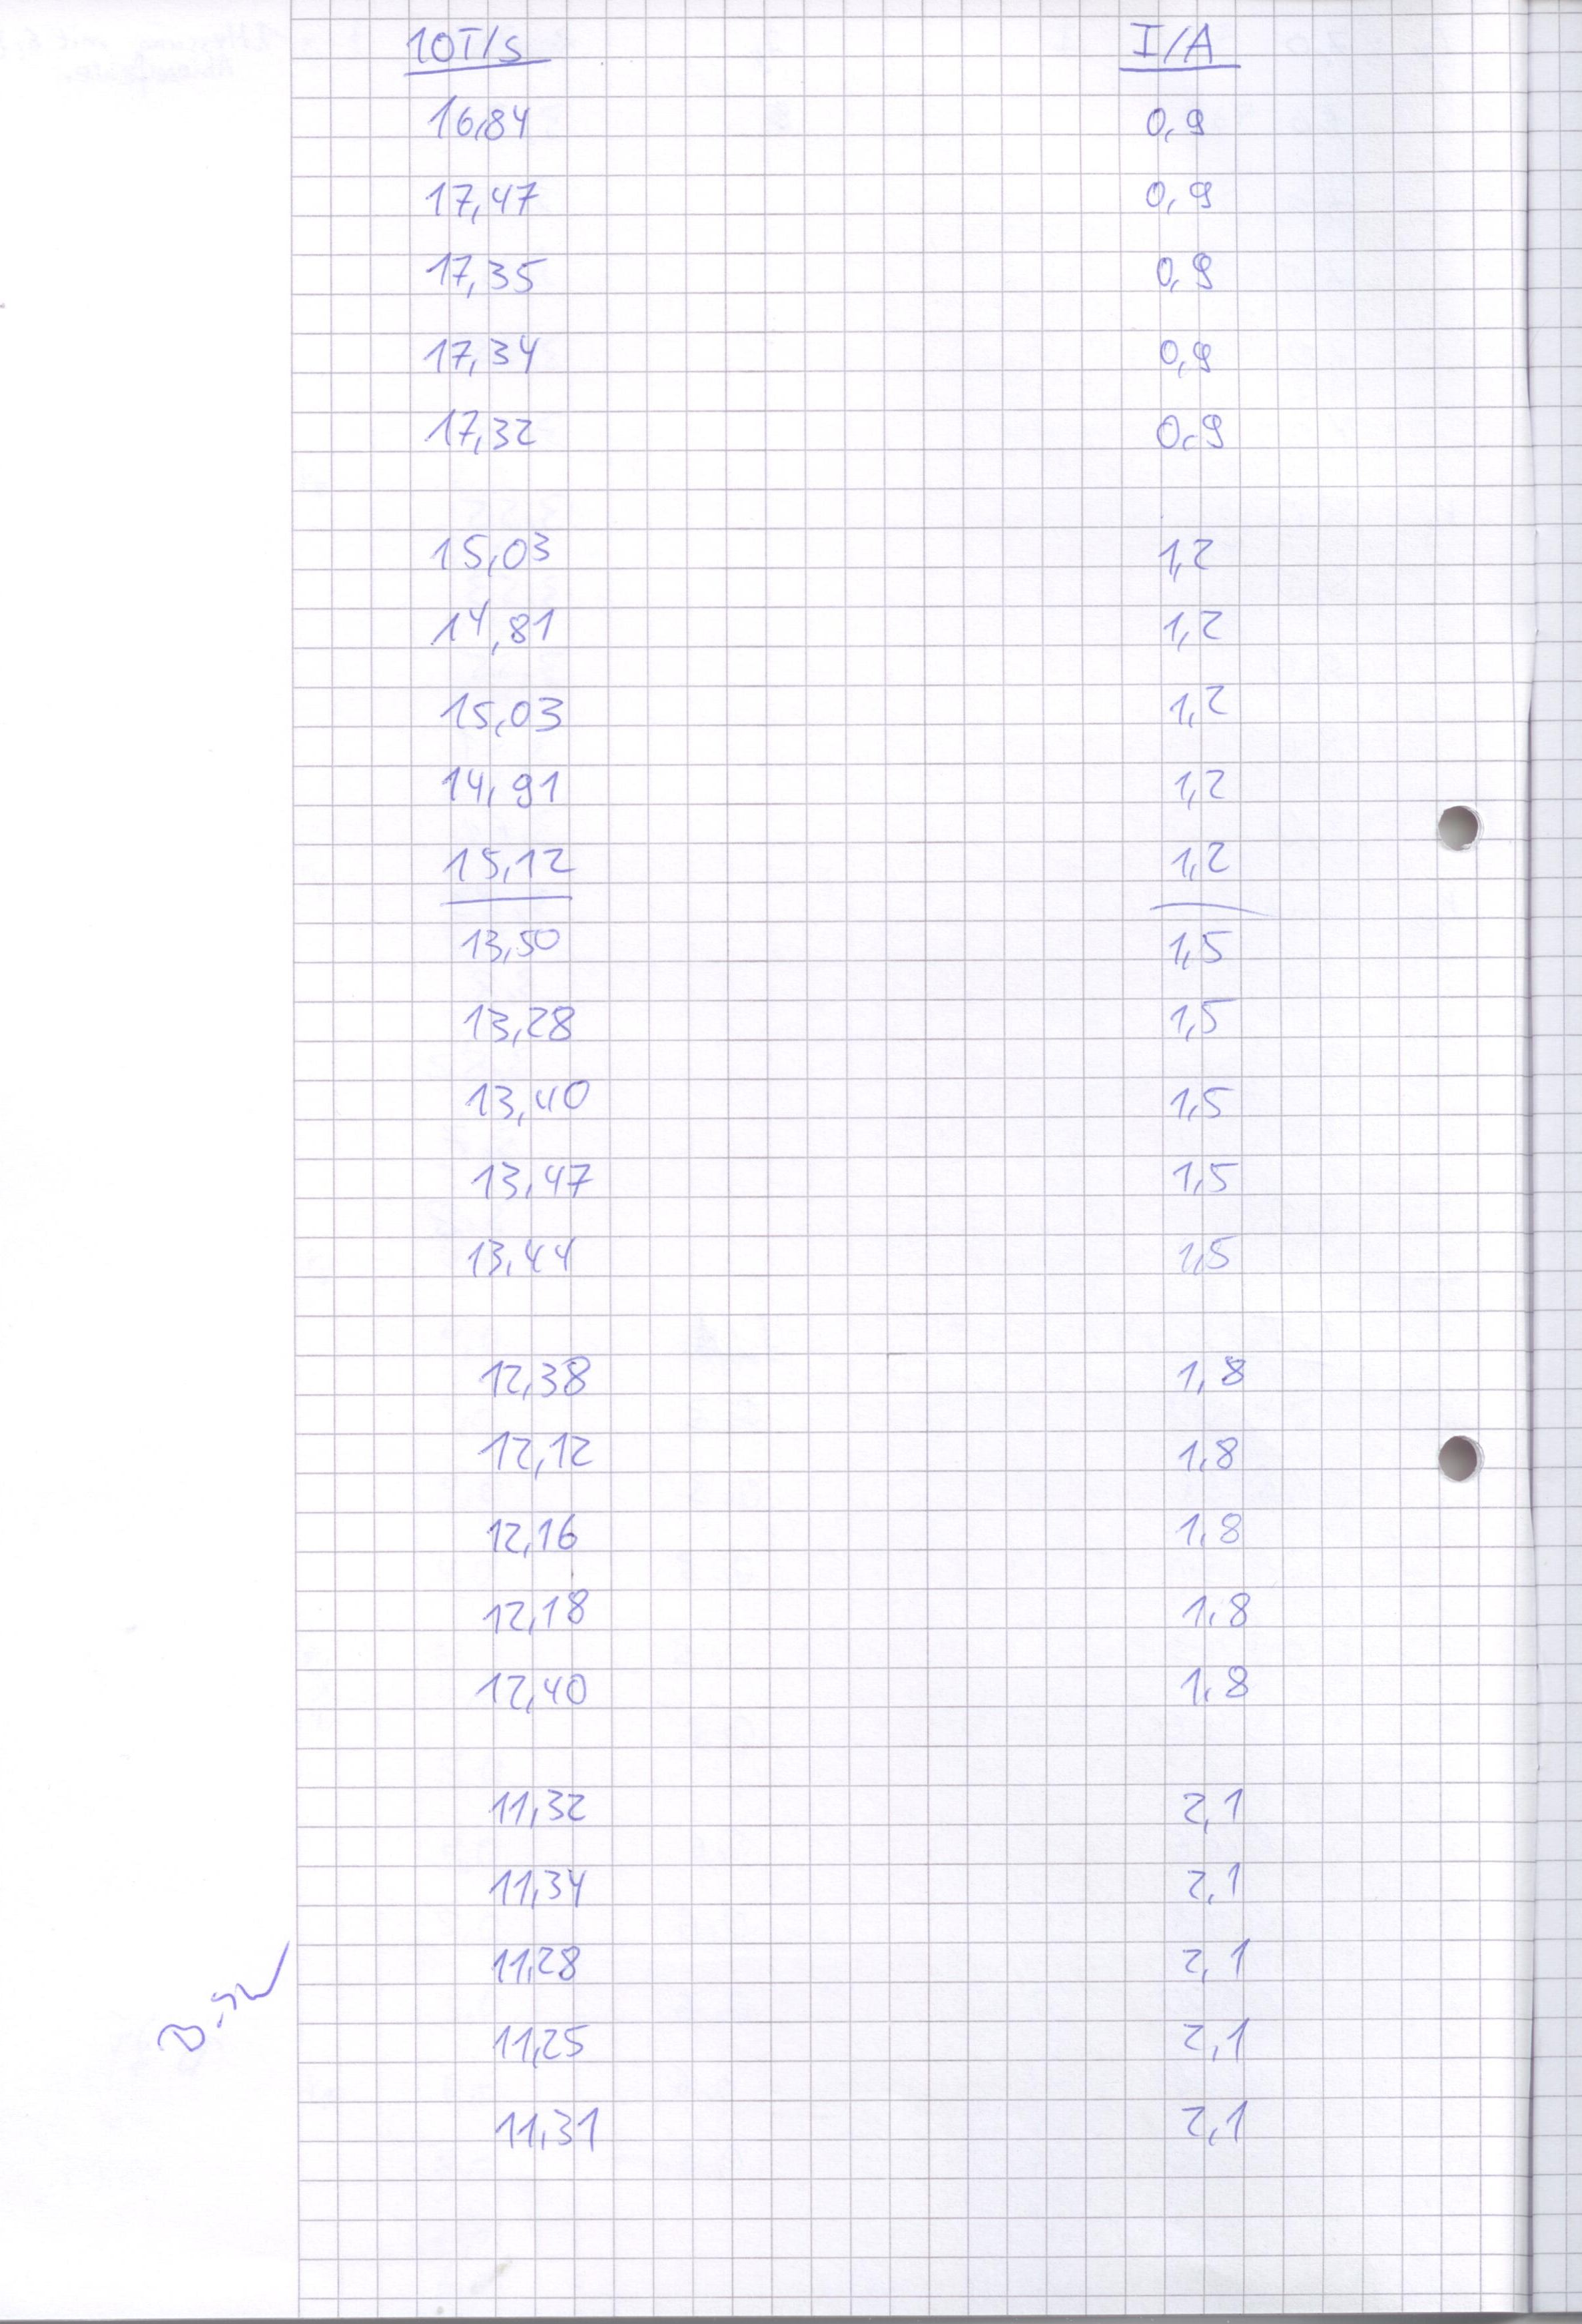 10T/s I/A
16,84 0,9
17,47 0,9
17,35 0,9
17,34 0,9
17,32 0,9
15,03 1,2
14,81 1,2
15,03 1,2
14,91 1,2
15,12 1,2
13,50 1,5
13,28 1,5
13,40 1,5
13,47 1,5
13,44 1,5
12,38 1,8
12,12 1,8
12,16 1,8
12,18 1,8
12,40 1,8
11,32 2,1
11,34 2,1
11,28 2,1
11,25 2,1
11,31 2,1